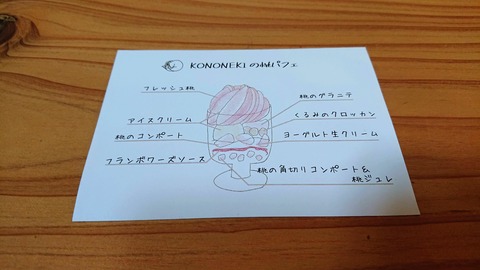 KONONEKIの桃パフェ
フレッシュ桃
桃のグラニテ
アイスクリーム
くるみのクロッカン
桃のコンポート
ヨーグルト生クリーム
フランボワーズソース
桃の角切りコンポート&
桃ジュレ